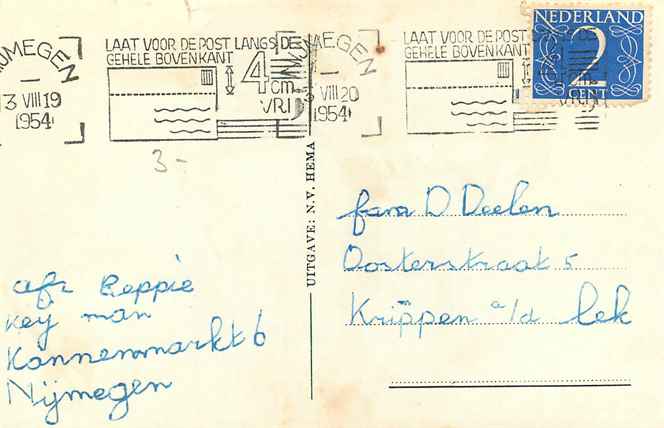 NIJMEGEN
3 VIII 19
1954
LAAT VOOR DE POST LANGS DE
GEHELE BOVENKANT
4 cm
VRIJ
NIJMEGEN
VIII 20
1954
LAAT VOOR DE POST
GEHELE BOVENKANT
NEDERLAND
2
CENT
3-
UITGAVE: N.V. HEMA
fam D Deelen
Oosterstraat 5
Krimpen a/d Lek
afz Beppie
Key man
Kannenmarkt 6
Nijmegen